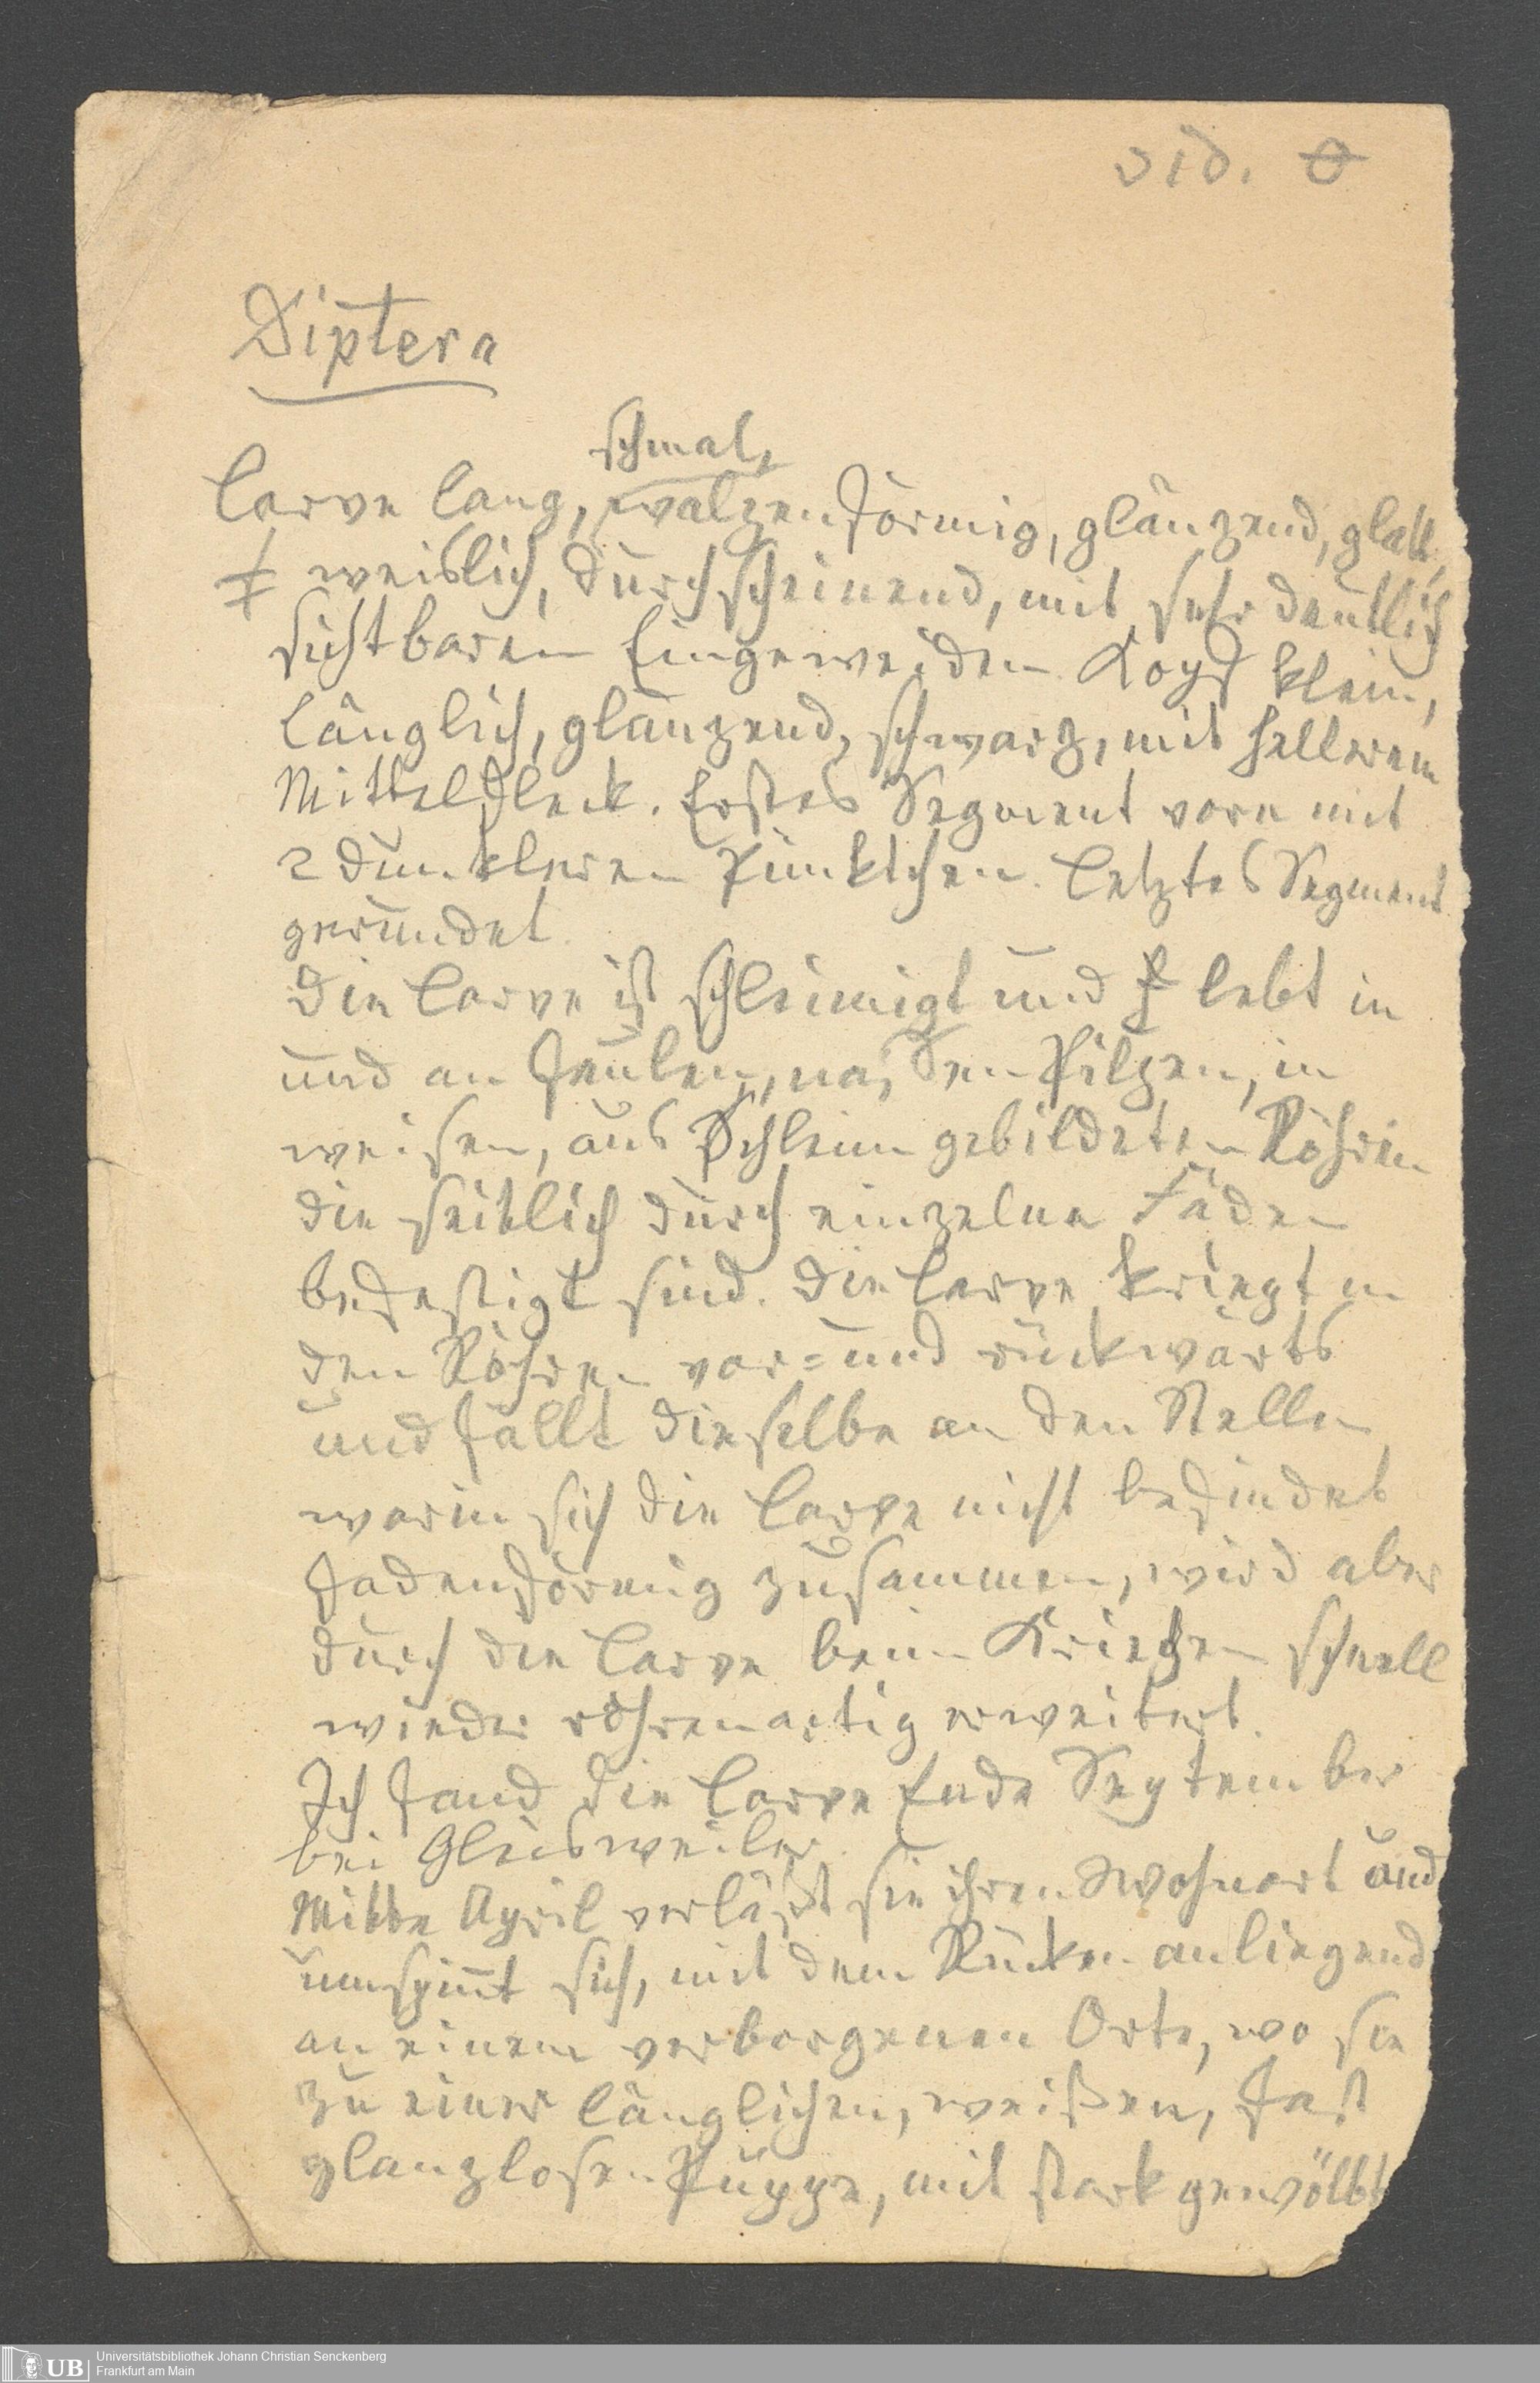 vid.
Diptera
schmal,
Larve lang, walzenförmig, glänzend, glatt,
weislich, durchscheinend, mit sehr deutlich
sichtbaren Eingeweiden. Kopf klein,
länglich, glänzend, schwarz, mit hellerem
Mittelfleck. Erstes Segment vorn mit
2 dunkleren Pünktchen. Letztes Segment
gerundet.
Die Larve ist schleimigt und lebt in
und an faulen, nassen Pilzen, in
weisen, aus Schleim gebildeten Röhren
die seitlich durch einzelne Fäden
befestigt sind. Die Larve kriegt in
den Röhren vor= und rückwärts
und fällt dieselbe an den Stellen
worin sich die Larve nicht befindet
fadenförmig zusammen, wird aber
durch die Larve beim Kriechen schnell
wieder röhrenartig erweitert.
Ich fand die Larve Ende September
bei Gleisweiler.
Mitte April verläßt sie ihren Wohnort und
umspinnt sich, mit dem Rücken anliegend
an einem verborgenen Orte, wo sie
zu einer länglichen, weißen, fast
glanzlosen Puppe, mit stark gewölbt
UB
Universitätsbibliothek Johann Christian Senckenberg
Frankfurt am Main